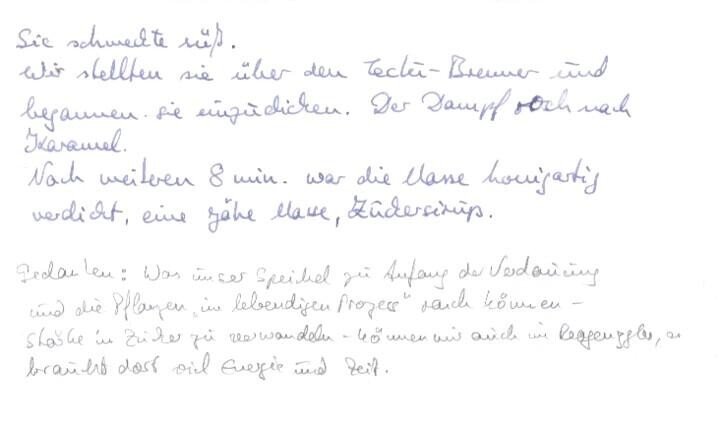 Sie schmeckte süß.
Wir stellten sie über den Teclu-Brenner und
begannen sie einzudicken. Der Dampf roch nach
Karamel.
Nach weiteren 8 min. war die Masse honigartig
verdickt, eine zähe Masse, Zuckersirup.
Gedanken: Was unser Speichel zu Anfang der Verdauung
und die Pflanzen „im lebendigen Prozess" rasch können –
Stärke in Zucker zu verwandeln – können wir auch im Reagenzglas, es
braucht dort viel Energie und Zeit.